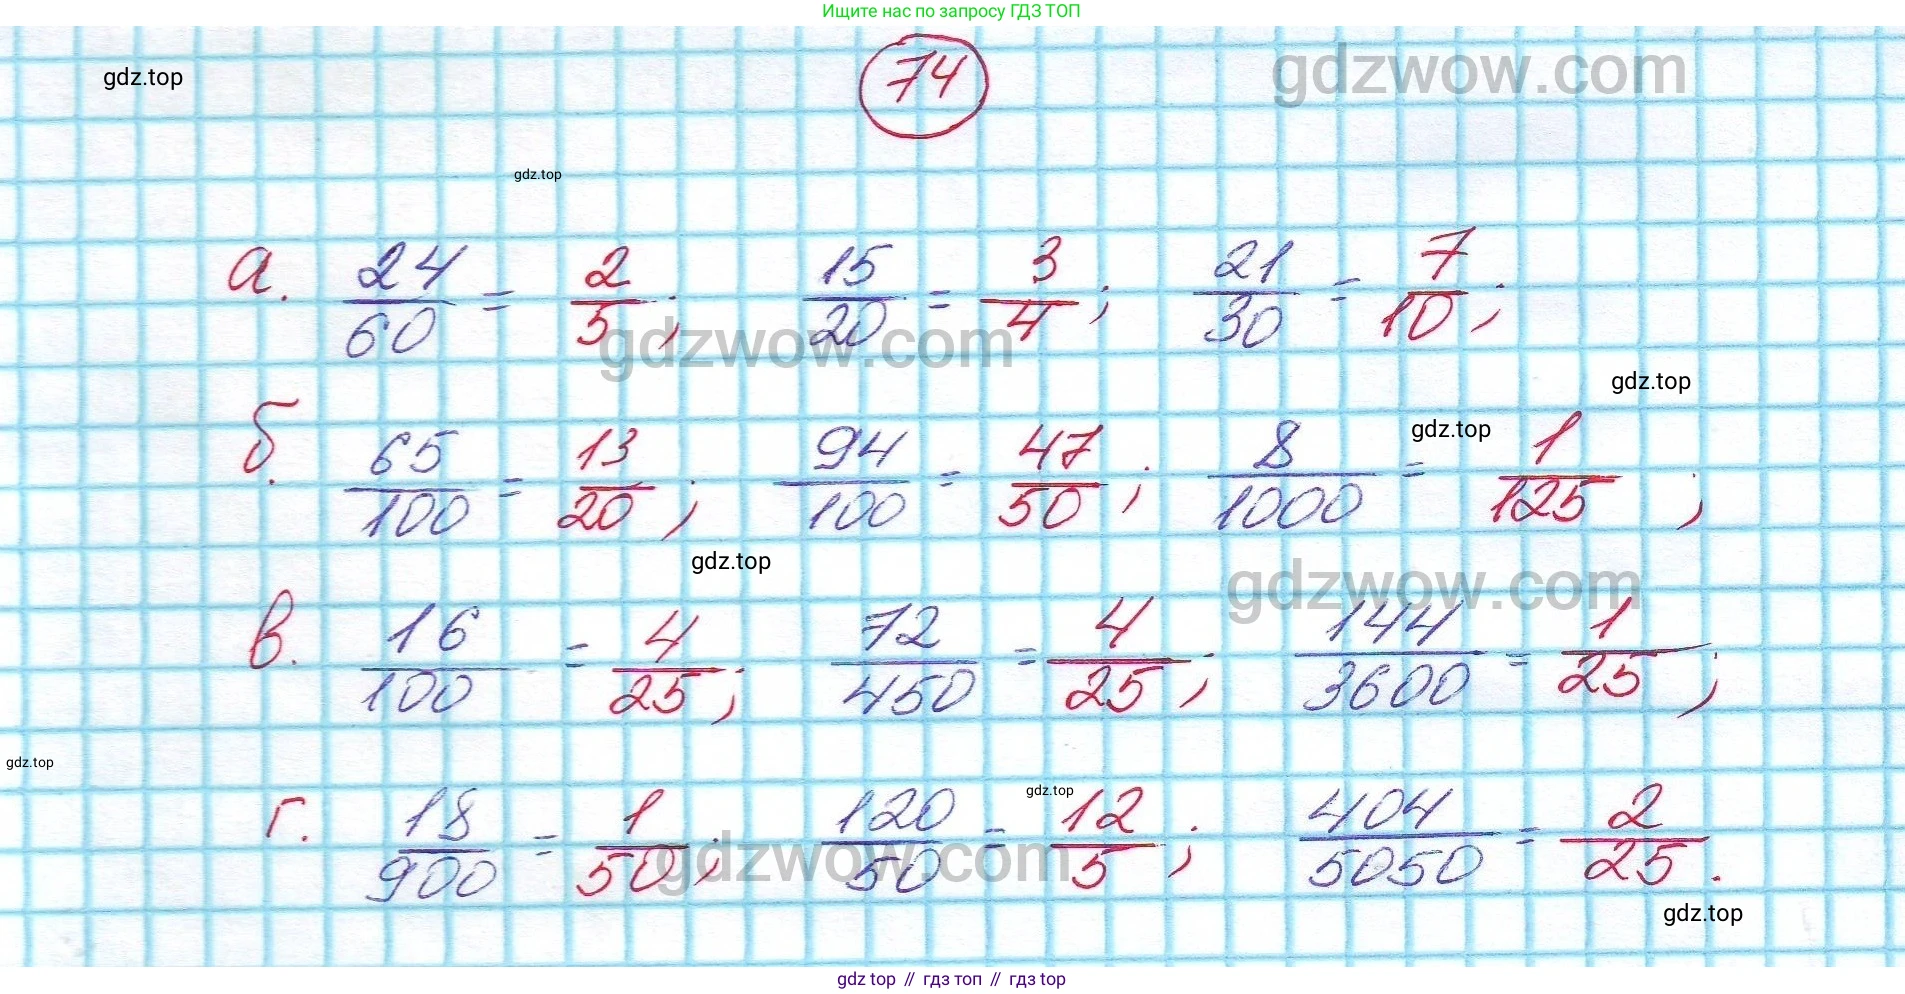 Ищите нас по запросу ГДЗ ТОП
74
gdz.top
gdzwow.com
gdz.top
а. 24/60 = 2/5; 15/20 = 3/4; 21/30 = 7/10;
gdzwow.com
gdz.top
gdz.top
б. 65/100 = 13/20; 94/100 = 47/50; 8/1000 = 1/125;
gdz.top
gdzwow.com
в. 16/100 = 4/25; 72/450 = 4/25; 144/3600 = 1/25;
gdz.top
gdz.top
г. 18/900 = 1/50; 120/50 = 12/5; 404/5050 = 2/25.
gdzwow.com
gdz.top
gdz.top // гдз топ // гдз top